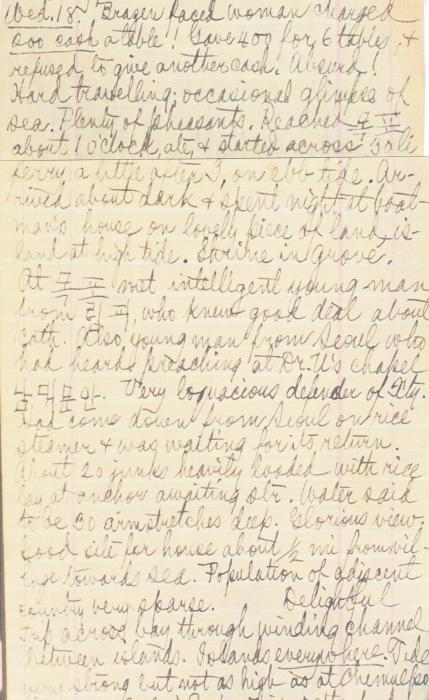 Wed. 18. Brazen faced woman charged
500 cash a table!! Gave 400 for 6 tables, &
refused to give another cash. Absurd!
Hard travelling; occasional glimpse of
sea. Plenty of pheasants. Reached
about 1 o'clock, ate, & started across 30 li
ferry a little after 3, on ebb tide. Ar-
rived about dark & spent night at boat-
man's house on lovely piece of land, is-
land at high tide. Shrine in grove.
At met intelligent young man
from, who knew good deal about
Cath. Also, young man from Seoul who
had heard preaching at Dr. U's chapel
남대문안. Very loquacious defender of Xty.
Had come down from Seoul on rice
steamer & was waiting for its return.
About 20 junks heavily loaded with rice
lay at anchor awaiting str. Water said
to be 30 armstretches deep. Glorious view.
Good site for house about ½ mi from vil-
lage towards sea. Population of adjacent
country very sparse. Delightful
trip across bay through winding channel
between islands. Islands everywhere. Tide
very strong but not as high as at Chemulpo